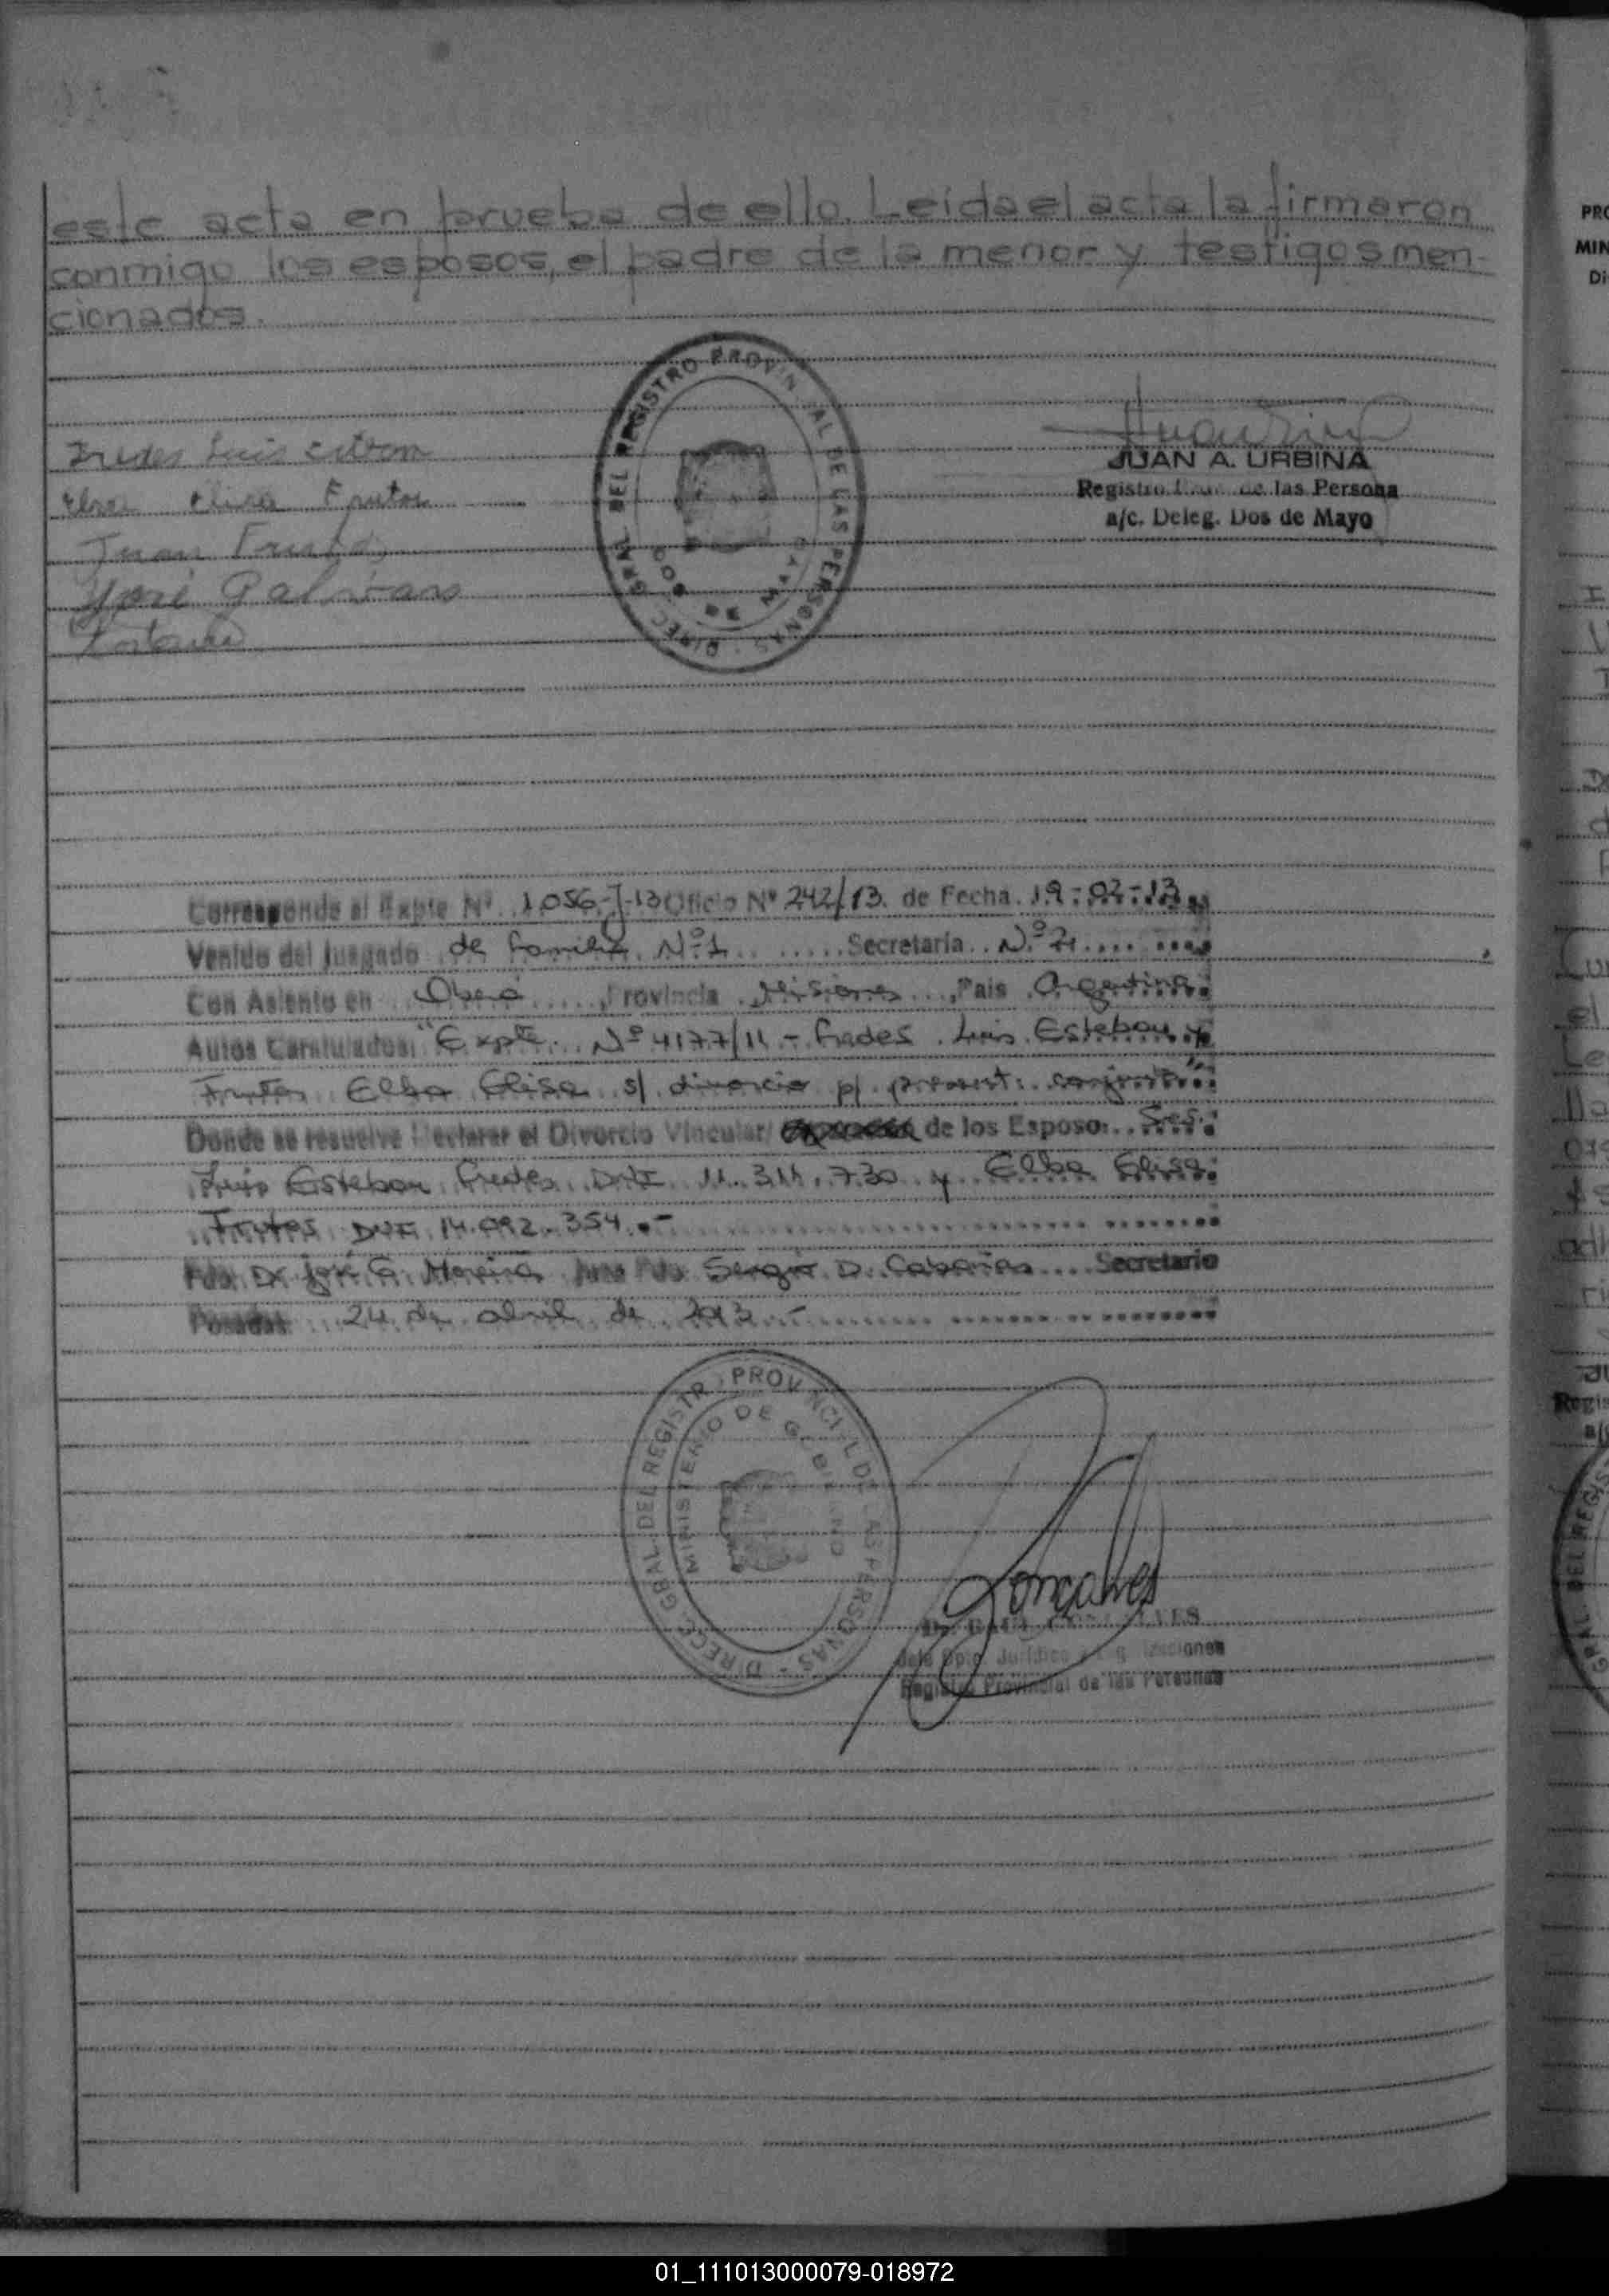 este acta en prueba de ello. Leida el acta la firmaron
conmigo los esposos, el padre de la menor y testigos men-
cionados.
DIREC. GRAL. DEL REGISTRO PROVINCIAL DE LAS PERSONAS
Fredes Luis
Elisa Frutos
Juan
JUAN A. URBINA
Registro de las Persona
a/c. Deleg. Dos de Mayo
Corresponde al Expte Nº 1056-J-13 Oficio Nº 242/13. de Fecha 19-02-13
Venido del Juzgado de familia Nº 1 Secretaría Nº
Con Asiento en Oberá Provincia Misiones, País Argentina
Autos Caratulados: "Expte. Nº 4177/11 - Fredes Luis Esteban y
Frutos Elba Elisa s/ divorcio p/ present. conjunta"
Donde se resuelve Declarar el Divorcio Vincular de los Esposo: Sres.
Luis Esteban Fredes DNI 11.311.730 y Elba Elisa
Frutos DNI 14.092.354.-
Fdo. Dr. José G. Moreira Juez Fdo. Sergio D. Cabañas Secretario
Posadas 24 de abril de 2013.-
DIRECC. GRAL. DEL REGISTRO PROVINCIAL DE LAS PERSONAS
MINISTERIO DE GOBIERNO
Goncalves
Jefe Dpto. Jurídico
Registro Provincial de las Personas
PRO
MIN
Di
01_111013000079-018972